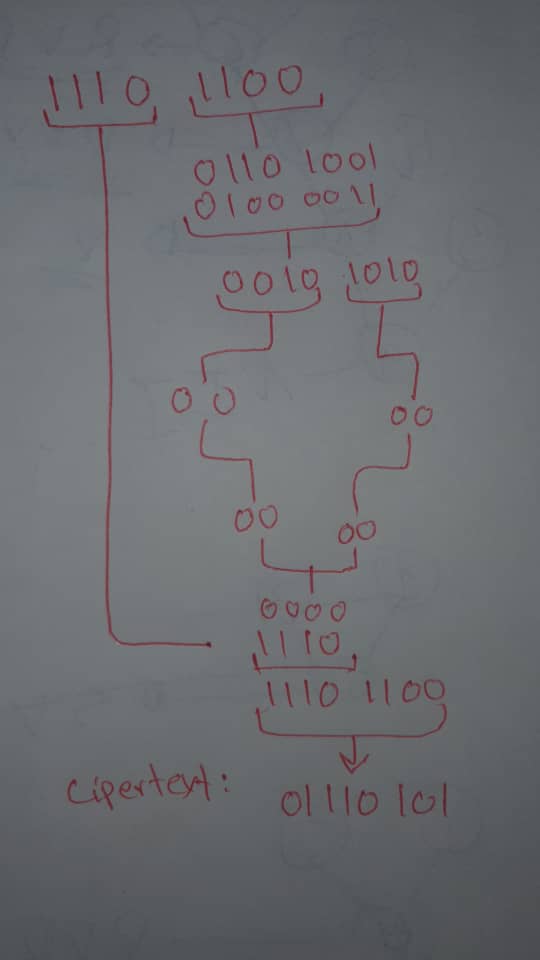 1110 1100
0110 1001
0100 0011
0010 1010
00 00
00 00
0000
1110
1110 1100
Cipertext: 01110 101